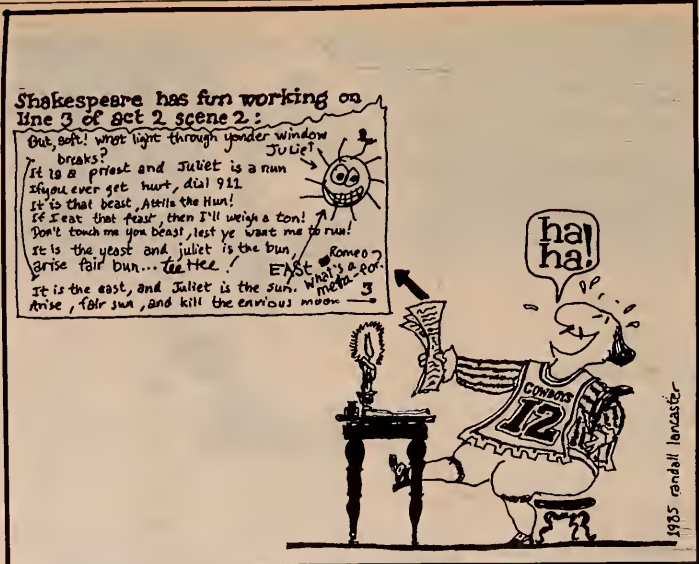 Shakespeare has fun working on
line 3 of act 2 scene 2:
But, soft! what light through yonder window
breaks?
Juliet
It is a priest and Juliet is a nun
If you ever get hurt, dial 911
It is that beast, Attila the Hun!
If I eat that feast, then I'll weigh a ton!
Don't touch me you beast, lest ye want me to run!
It is the yeast and juliet is the bun,
arise fair bun... Tee Hee!
EAST
Romeo
What's a
meta-for?
It is the east, and Juliet is the sun.
Arise, fair sun, and kill the envious moon
3
ha
ha!
COWBOYS
12
1985 randall lancaster